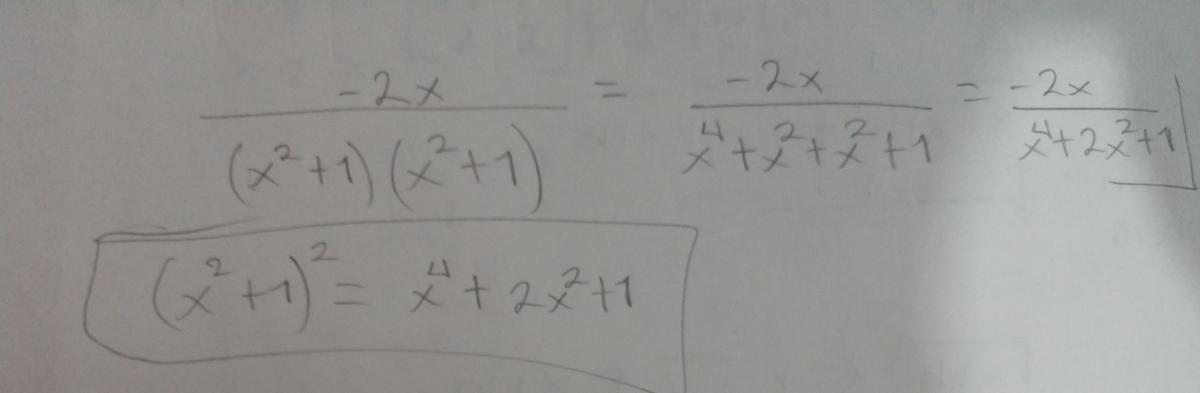 -2x / (x²+1)(x²+1) = -2x / x⁴+x²+x²+1 = -2x / x⁴+2x²+1
(x²+1)² = x⁴+2x²+1